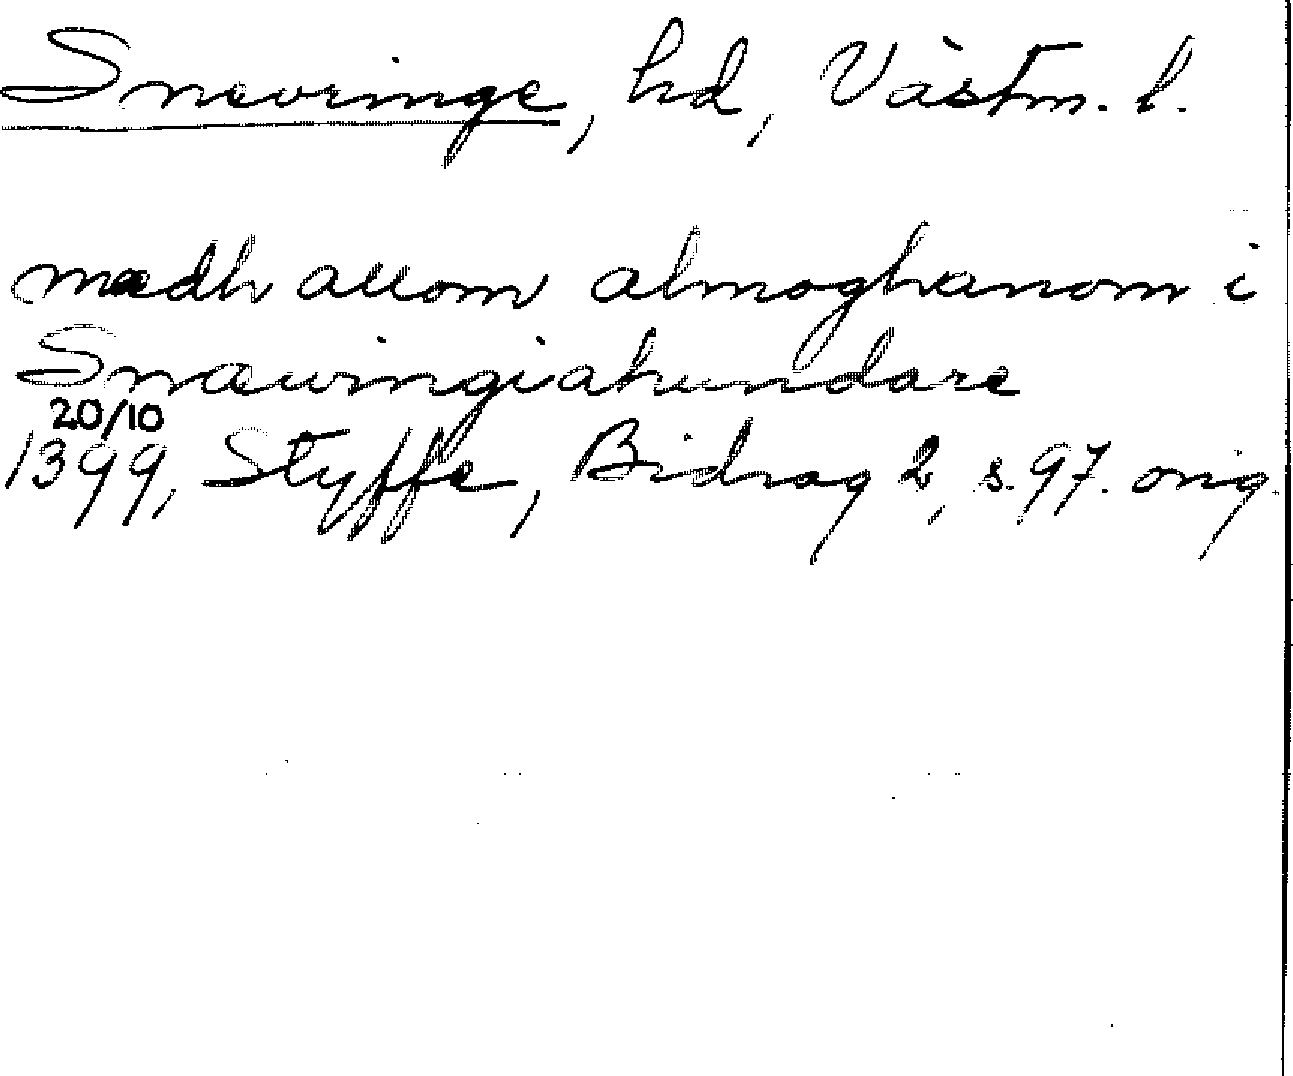 Snevringe, hd, Västm. l.
mædh allom almoghanom i
Snæwringiahundare
20/10
1399, Styffe, Bidrag 2, s. 97. orig.